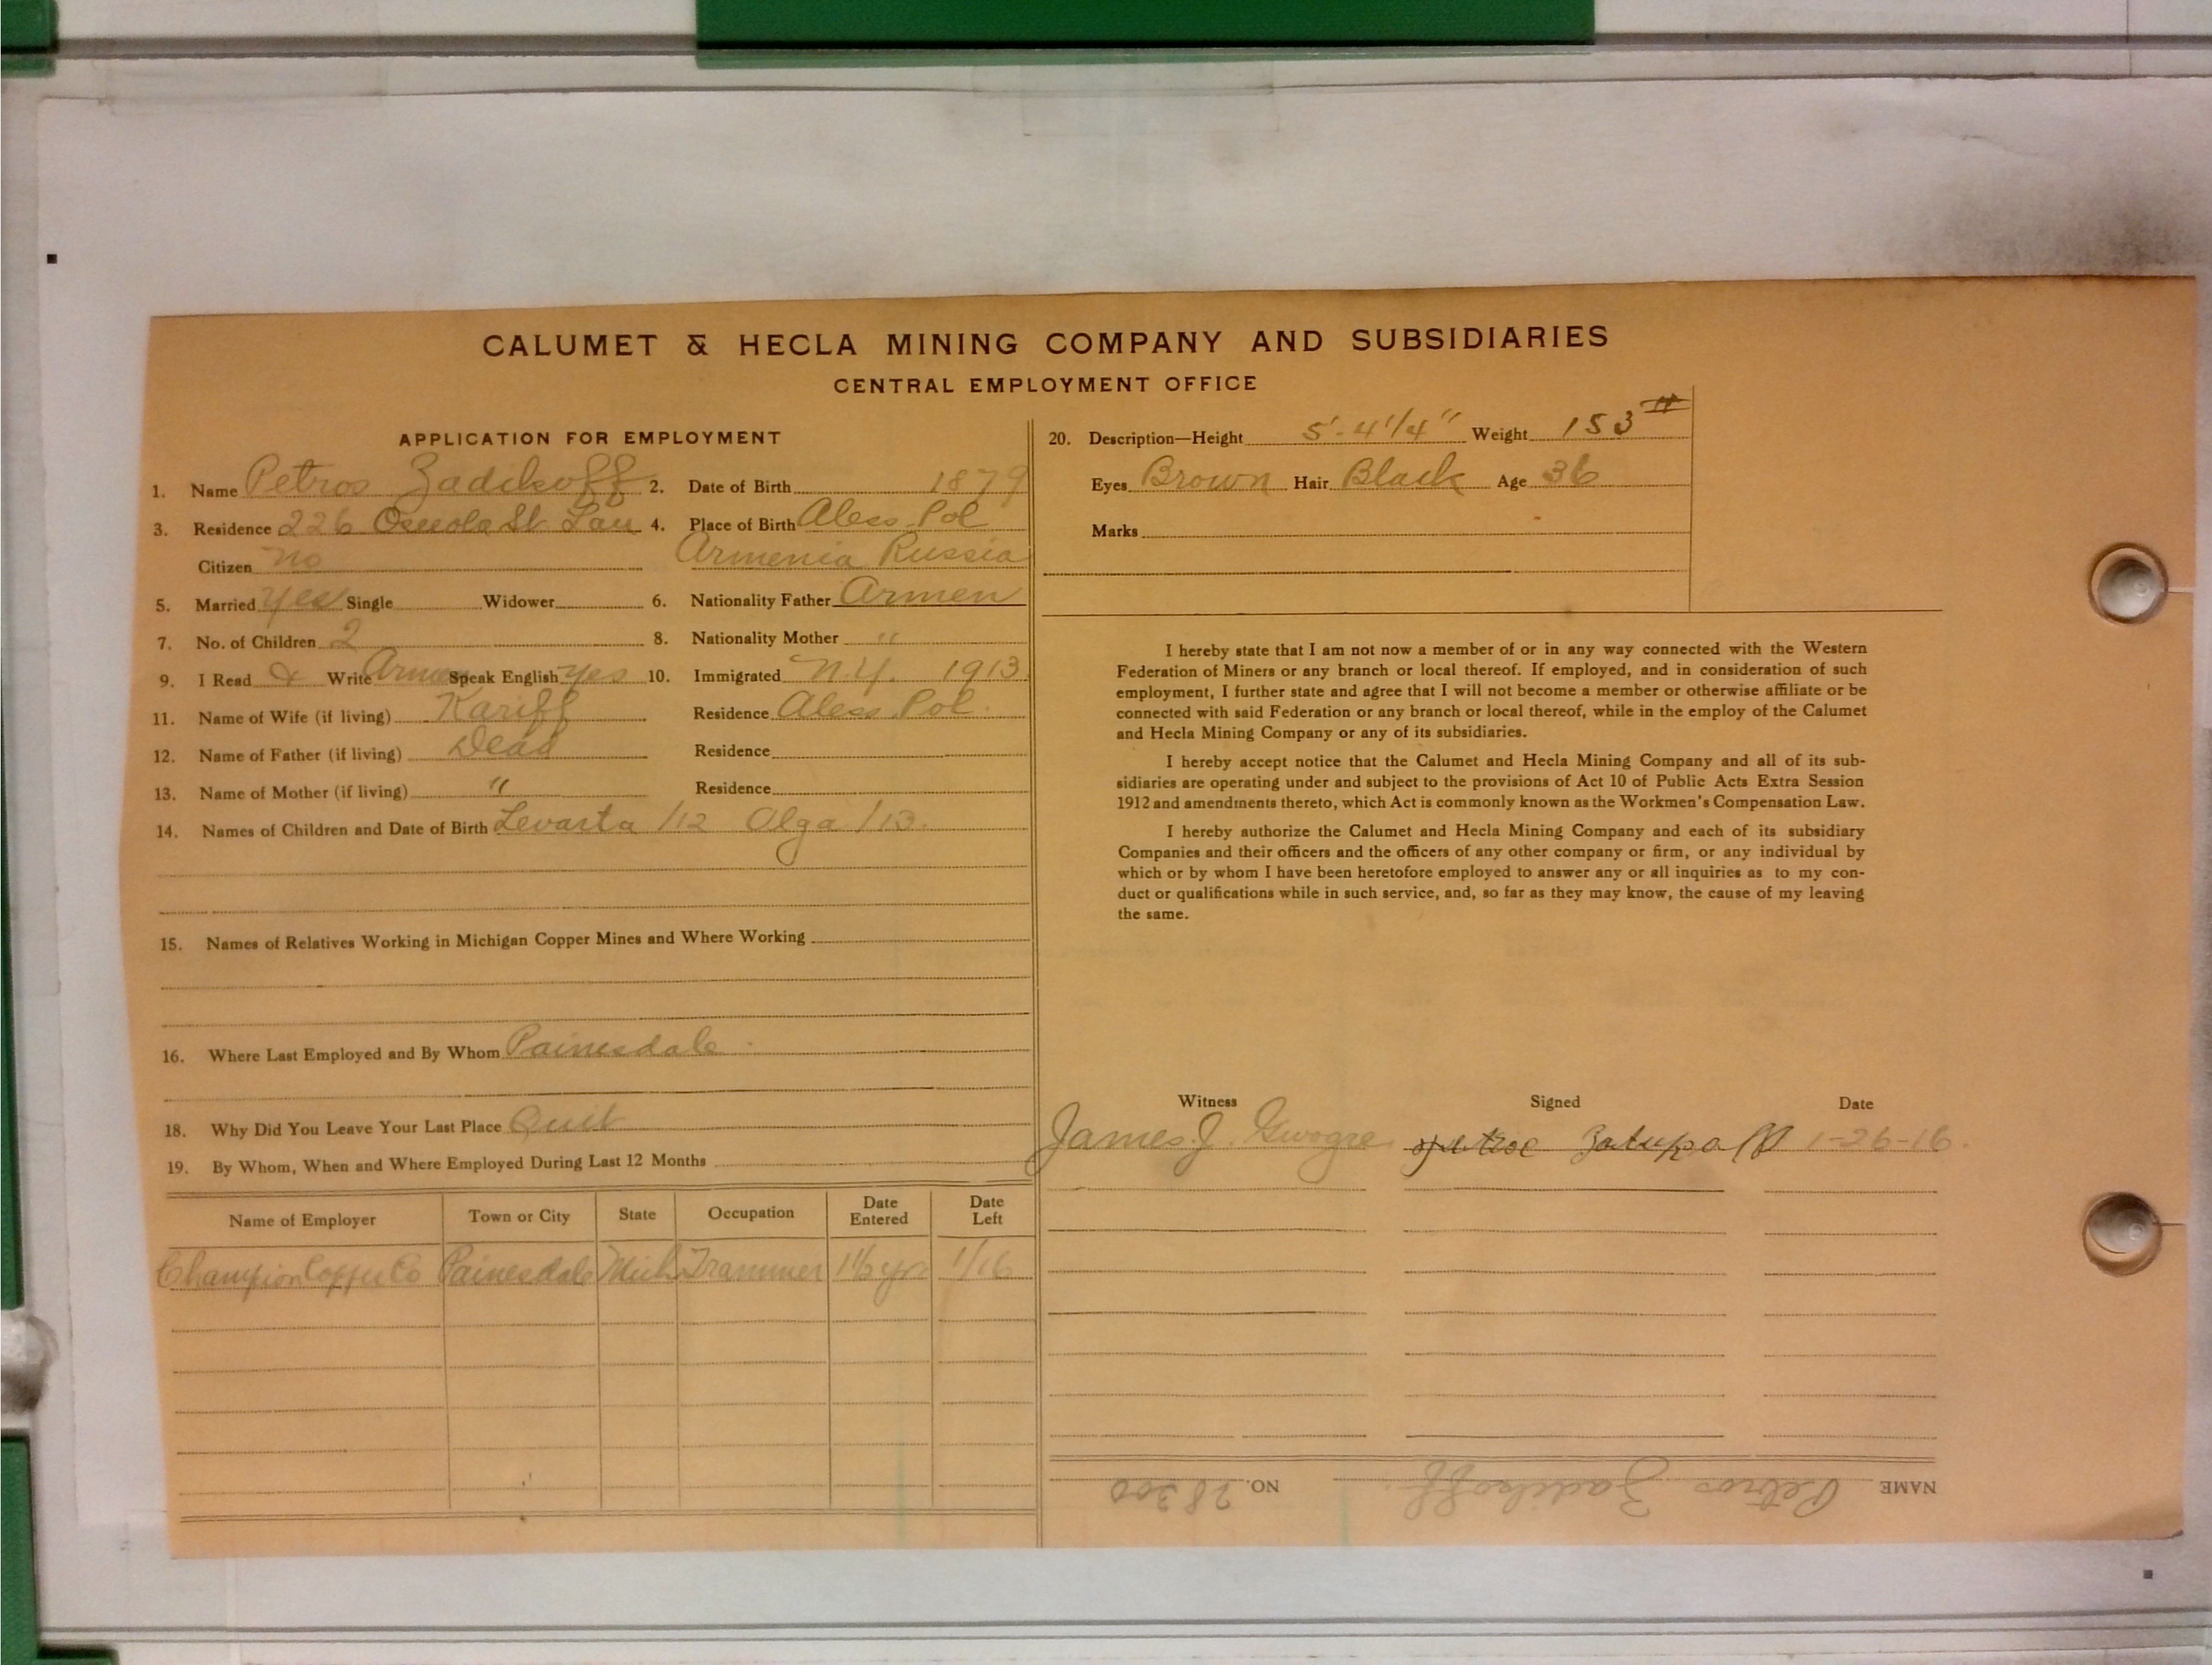 CALUMET & HECLA MINING COMPANY AND SUBSIDIARIES
CENTRAL EMPLOYMENT OFFICE
APPLICATION FOR EMPLOYMENT
1. Name Petros Zadikoff 2. Date of Birth 1879
3. Residence 226 Oseola St Lau 4. Place of Birth Aless. Pol
Citizen no Armenia Russia
5. Married yes Single Widower 6. Nationality Father Armen
7. No. of Children 2 8. Nationality Mother "
9. I Read & Write Armen Speak English yes 10. Immigrated N.Y. 1913
11. Name of Wife (if living) Kariff Residence Aless. Pol.
12. Name of Father (if living) Dead Residence
13. Name of Mother (if living) " Residence
14. Names of Children and Date of Birth Levarta /12 Olga /13.
15. Names of Relatives Working in Michigan Copper Mines and Where Working
16. Where Last Employed and By Whom Painesdale
18. Why Did You Leave Your Last Place Quit
19. By Whom, When and Where Employed During Last 12 Months
Name of Employer Town or City State Occupation Date Entered Date Left
Champion Copper Co Painesdale Mich Trammer yr 1/16
20. Description—Height 5'-4 1/4" Weight 153 #
Eyes Brown Hair Black Age 36
Marks
I hereby state that I am not now a member of or in any way connected with the Western
Federation of Miners or any branch or local thereof. If employed, and in consideration of such
employment, I further state and agree that I will not become a member or otherwise affiliate or be
connected with said Federation or any branch or local thereof, while in the employ of the Calumet
and Hecla Mining Company or any of its subsidiaries.
I hereby accept notice that the Calumet and Hecla Mining Company and all of its sub-
sidiaries are operating under and subject to the provisions of Act 10 of Public Acts Extra Session
1912 and amendments thereto, which Act is commonly known as the Workmen's Compensation Law.
I hereby authorize the Calumet and Hecla Mining Company and each of its subsidiary
Companies and their officers and the officers of any other company or firm, or any individual by
which or by whom I have been heretofore employed to answer any or all inquiries as to my con-
duct or qualifications while in such service, and, so far as they may know, the cause of my leaving
the same.
Witness Signed Date
James J. 1-26-16.
NAME Petros Zadikoff. NO. 28300